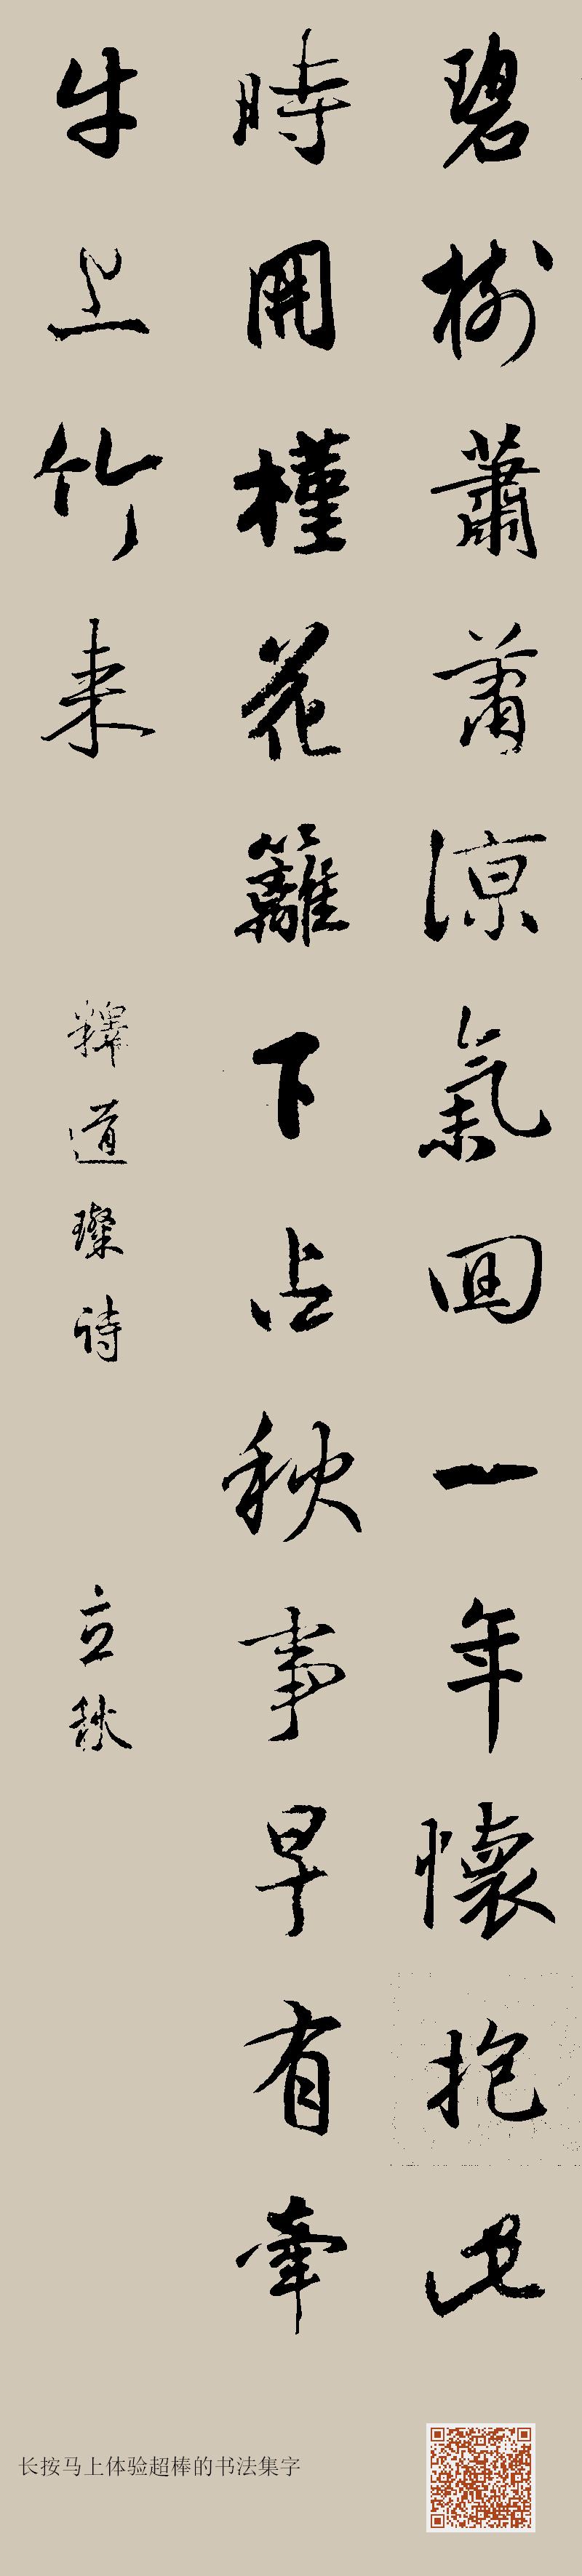 碧樹蕭蕭涼氣回一年懷抱此
時開槿花籬下占秋事早有牽
牛上竹来
釋道璨诗
立秋
长按马上体验超棒的书法集字